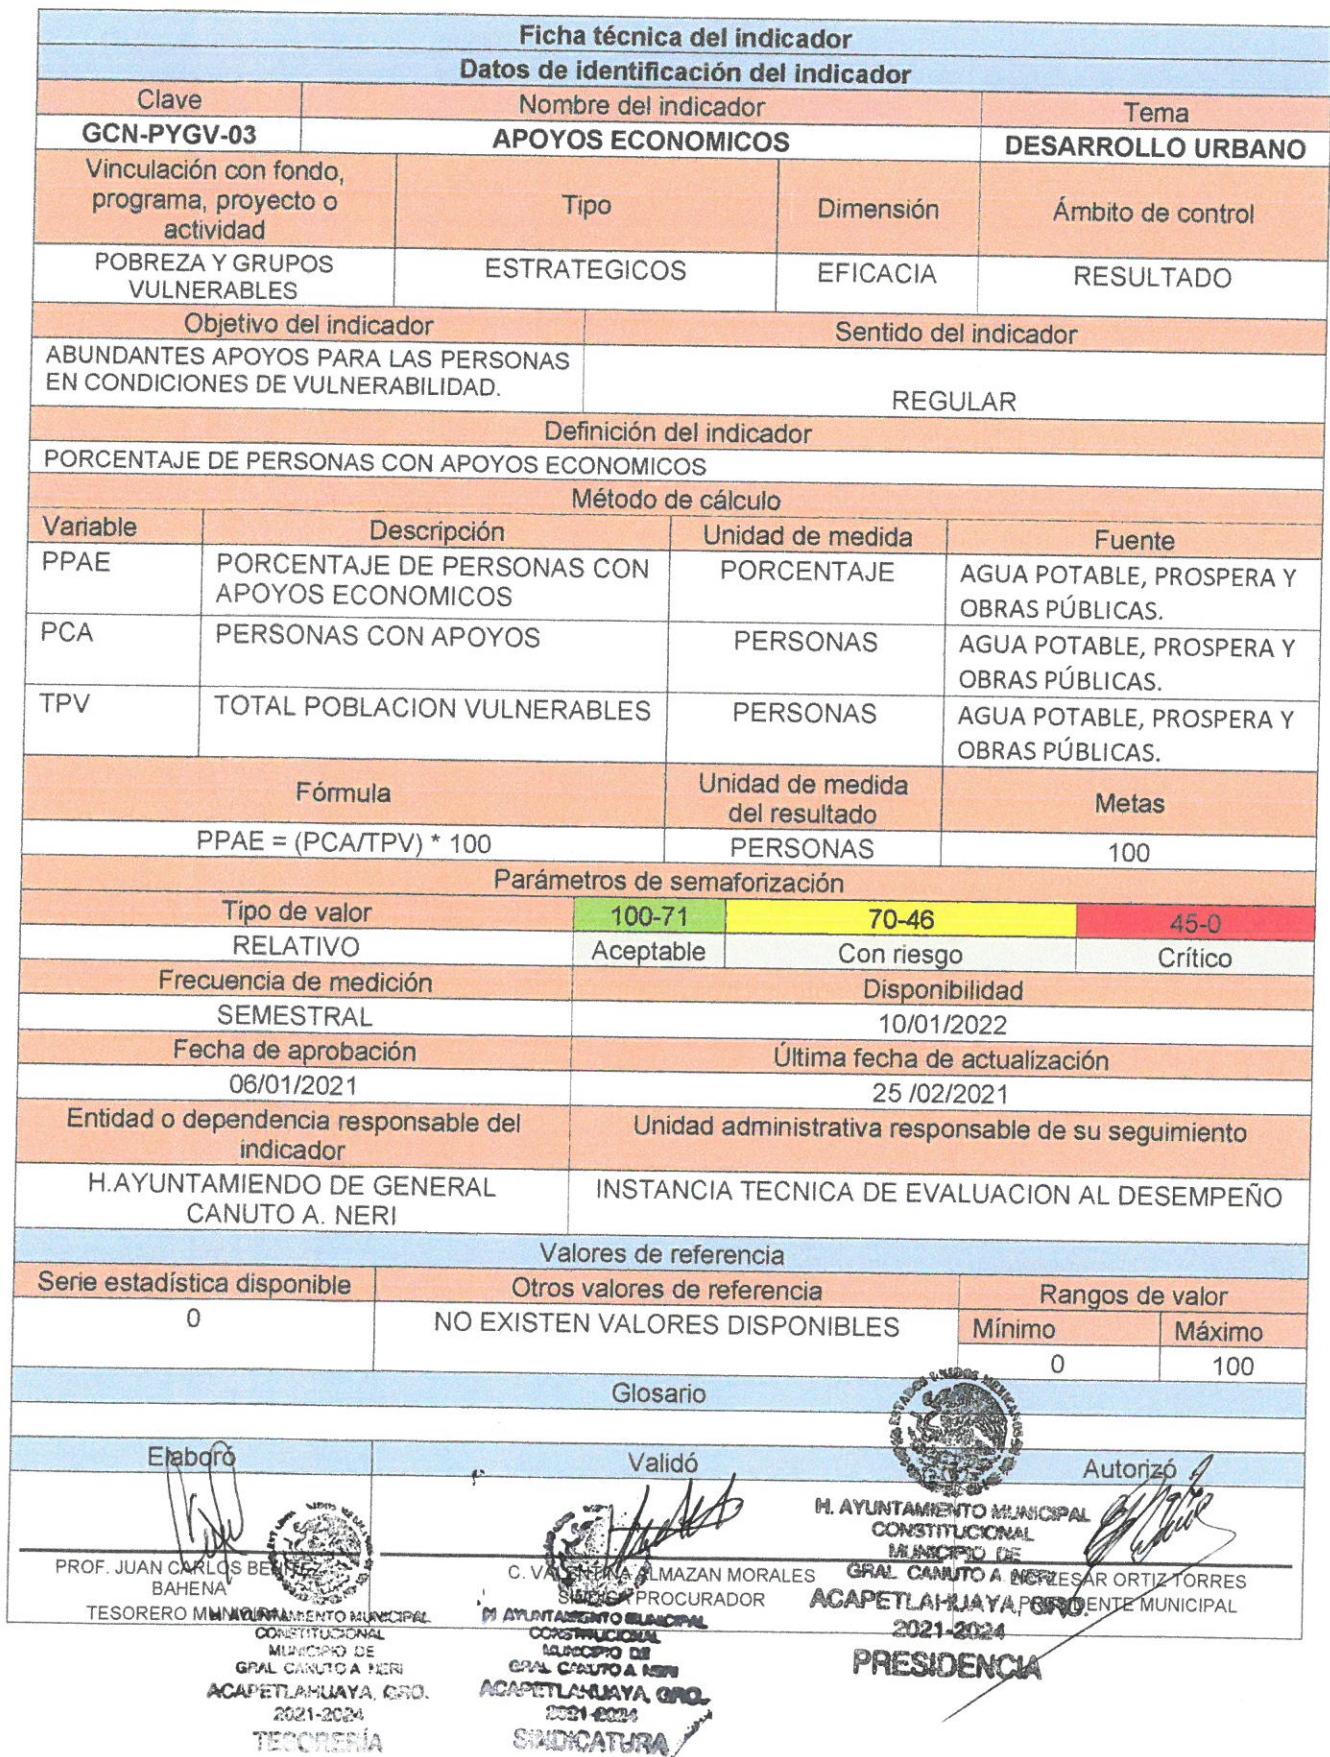 Ficha técnica del indicador
Datos de identificación del indicador
Clave Nombre del indicador Tema
GCN-PYGV-03 APOYOS ECONOMICOS DESARROLLO URBANO
Vinculación con fondo,
programa, proyecto o
actividad
Tipo Dimensión Ámbito de control
POBREZA Y GRUPOS
VULNERABLES
ESTRATEGICOS EFICACIA RESULTADO
Objetivo del indicador Sentido del indicador
ABUNDANTES APOYOS PARA LAS PERSONAS
EN CONDICIONES DE VULNERABILIDAD.
REGULAR
Definición del indicador
PORCENTAJE DE PERSONAS CON APOYOS ECONOMICOS
Método de cálculo
Variable Descripción Unidad de medida Fuente
PPAE PORCENTAJE DE PERSONAS CON
APOYOS ECONOMICOS
PORCENTAJE
AGUA POTABLE, PROSPERA Y
OBRAS PÚBLICAS.
PCA PERSONAS CON APOYOS PERSONAS
AGUA POTABLE, PROSPERA Y
OBRAS PÚBLICAS.
TPV TOTAL POBLACION VULNERABLES PERSONAS
AGUA POTABLE, PROSPERA Y
OBRAS PÚBLICAS.
Fórmula
Unidad de medida
del resultado
Metas
PPAE = (PCA/TPV) * 100 PERSONAS 100
Parámetros de semaforización
Tipo de valor 100-71 70-46 45-0
RELATIVO Aceptable Con riesgo Crítico
Frecuencia de medición Disponibilidad
SEMESTRAL 10/01/2022
Fecha de aprobación Última fecha de actualización
06/01/2021 25 /02/2021
Entidad o dependencia responsable del
indicador
Unidad administrativa responsable de su seguimiento
H.AYUNTAMIENDO DE GENERAL
CANUTO A. NERI
INSTANCIA TECNICA DE EVALUACION AL DESEMPEÑO
Valores de referencia
Serie estadística disponible Otros valores de referencia Rangos de valor
0 NO EXISTEN VALORES DISPONIBLES Mínimo Máximo
0 100
Glosario
Elaboró Validó Autorizó
PROF. JUAN CARLOS BENITEZ
BAHENA
TESORERO
C. VALENTINA ALMAZAN MORALES
PROCURADOR
ORTIZ TORRES
MUNICIPAL
H. AYUNTAMIENTO MUNICIPAL
CONSTITUCIONAL
MUNICIPIO DE
GRAL CANUTO A NERI
ACAPETLAHUAYA, GRO.
2021-2024
TESORERÍA
H AYUNTAMIENTO MUNICIPAL
CONSTITUCIONAL
MUNICIPIO DE
GRAL CANUTO A NERI
ACAPETLAHUAYA, GRO.
2021-2024
SINDICATURA
ESTADOS UNIDOS MEXICANOS
H. AYUNTAMIENTO MUNICIPAL
CONSTITUCIONAL
MUNICIPIO DE
GRAL CANUTO A NERI
ACAPETLAHUAYA, GRO.
2021-2024
PRESIDENCIA